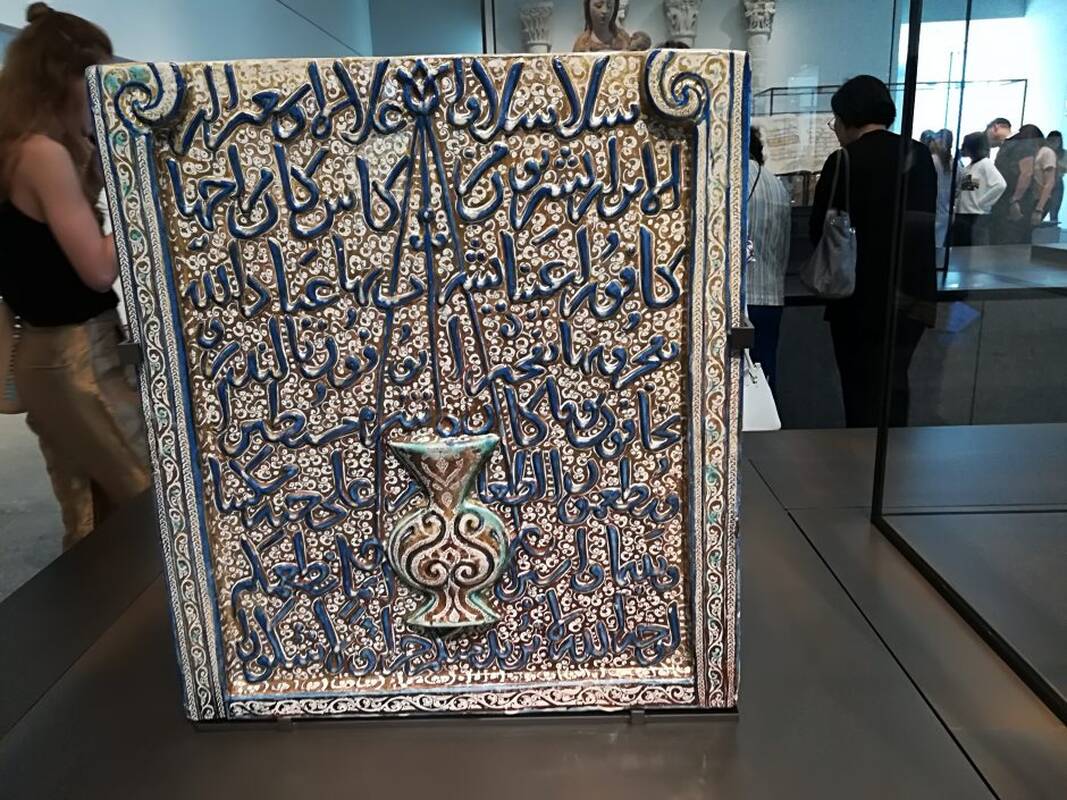 سلاسلا واغلالا وسعيرا ان
الابرار يشربون من كاس كان مزاجها
كافورا عينا يشرب بها عباد الله
يفجرونها تفجيرا يوفون بالنذر و
يخافون يوما كان شره مستطيرا
ويطعمون الطعام على حبه مسكينا
ويتيما واسيرا انما نطعمكم
لوجه الله لا نريد منكم جزا ولا شكورا